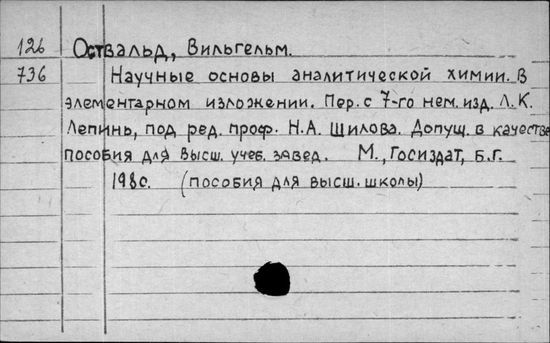 126 Оствальд, Вильгельм.
736 Научные основы аналитической химии. В
элементарном изложении. Пер. с 7-го нем. изд. Л. К.
Лепинь, под ред. проф. Н.А. Шилова. Допущ. в качестве
пособия для высш. учеб. завед. М., Госиздат, б.г.
198с. (пособия для высш. школы)